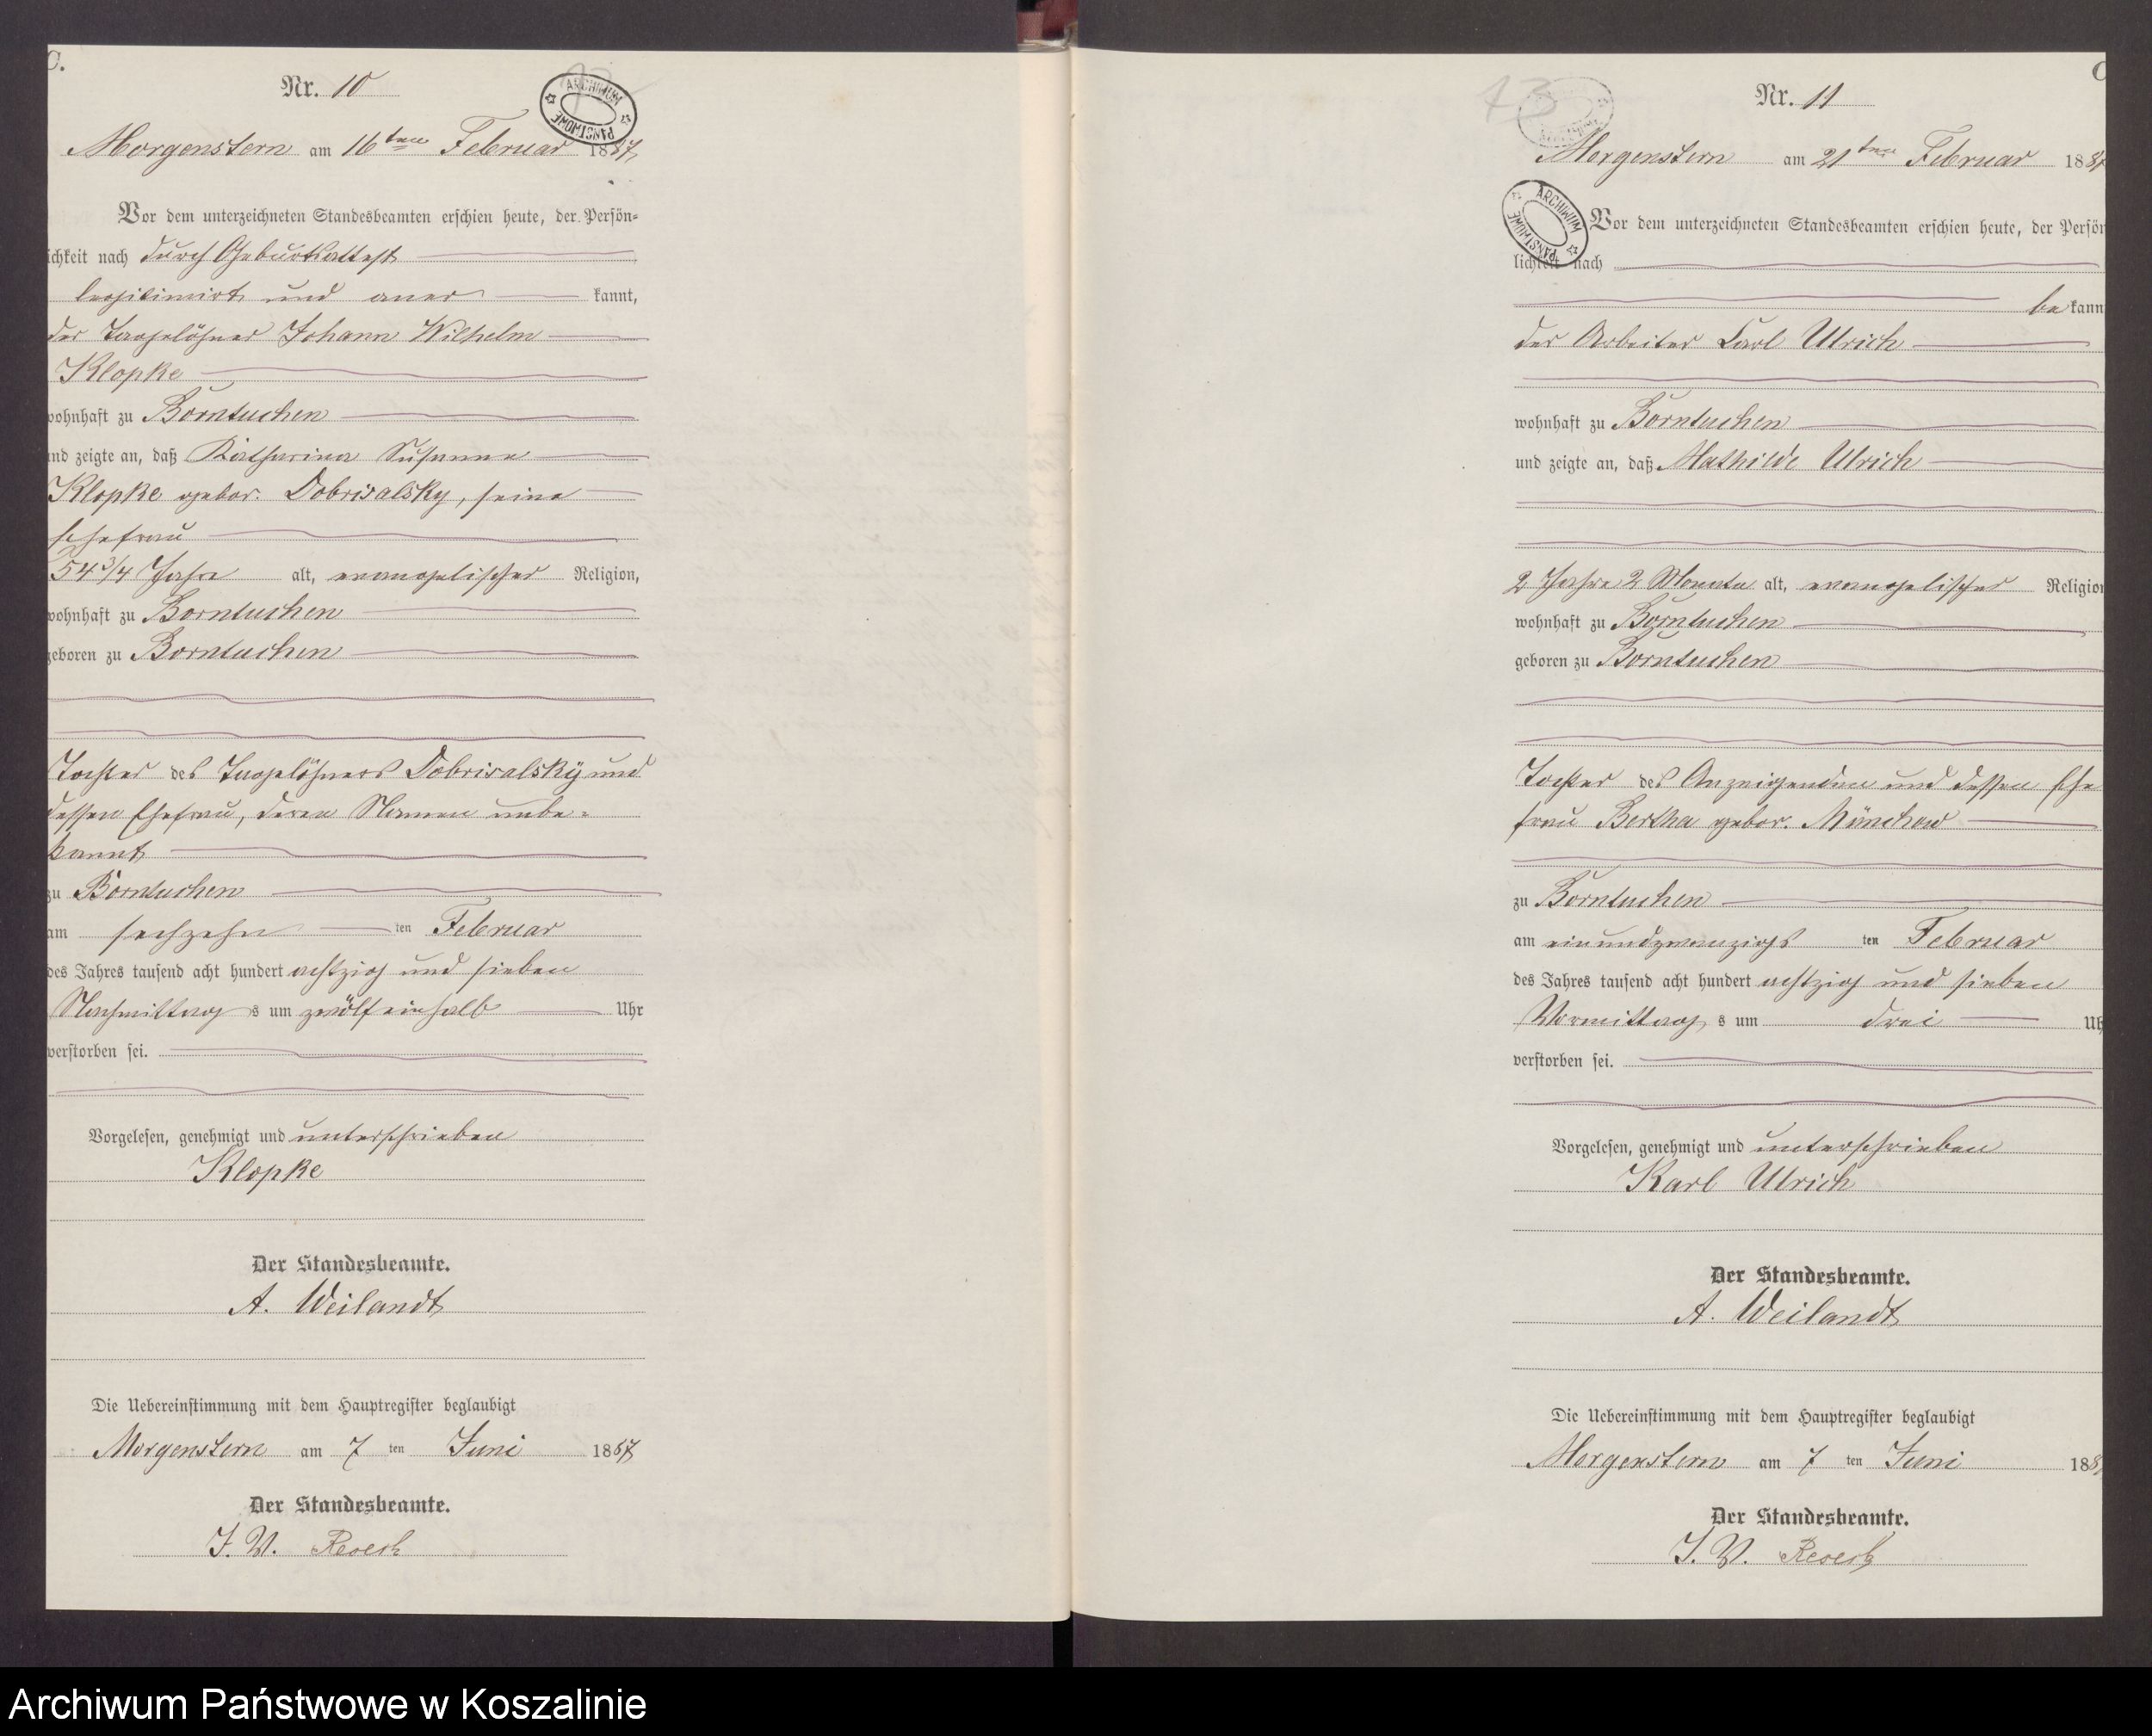 C.
Nr. 10
ARCHIWUM PAŃSTWOWE
Morgenstern am 16ten Februar 1887
Vor dem unterzeichneten Standesbeamten erschien heute, der Persön=
ichkeit nach durch Geburtsattest
legitimirt und aner kannt,
der Tagelöhner Johann Wilhelm
Klopke
wohnhaft zu Borntuchen
und zeigte an, daß Katharina Susanna
Klopke gebor. Dobrisalsky, seine
Ehefrau
54 3/4 Jahr alt, evangelischer Religion,
wohnhaft zu Borntuchen
geboren zu Borntuchen
Tochter des Tagelöhners Dobrisalsky und
dessen Ehefrau, deren Namen unbe=
kannt
zu Borntuchen
am sechzehn ten Februar
des Jahres tausend acht hundert achtzig und sieben
Nachmittag s um zwölf ein halb Uhr
verstorben sei.
Vorgelesen, genehmigt und unterschrieben
Klopke
Der Standesbeamte.
A. Weilandt
Die Uebereinstimmung mit dem Hauptregister beglaubigt
Morgenstern am 7 ten Juni 1887
Der Standesbeamte.
J. V.
13
C
Nr. 11
Morgenstern am 21ten Februar 188
ARCHIWUM PAŃSTWOWE
Vor dem unterzeichneten Standesbeamten erschien heute, der Persön
lichkeit nach
be kann
der Arbeiter Carl Ulrich
wohnhaft zu Borntuchen
und zeigte an, daß Mathilde Ulrich
2 Jahre 2 Monate alt, evangelischer Religion
wohnhaft zu Borntuchen
geboren zu Borntuchen
Tochter des Anzeigenden und dessen Ehe
frau Bertha gebor. Münchow
zu Borntuchen
am einundzwanzigs ten Februar
des Jahres tausend acht hundert achtzig und sieben
Vormittag s um drei Uh
verstorben sei.
Vorgelesen, genehmigt und unterschrieben
Karl Ulrich
Der Standesbeamte.
A. Weilandt
Die Uebereinstimmung mit dem Hauptregister beglaubigt
Morgenstern am 7 ten Juni 188
Der Standesbeamte.
J. V.
Archiwum Państwowe w Koszalinie